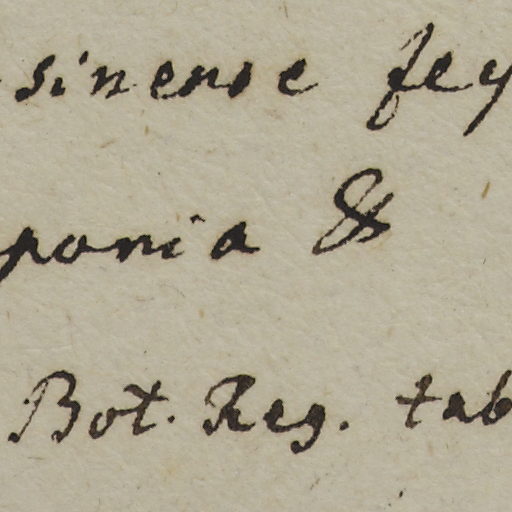 sinense
ponia &
Bot. Reg. tab